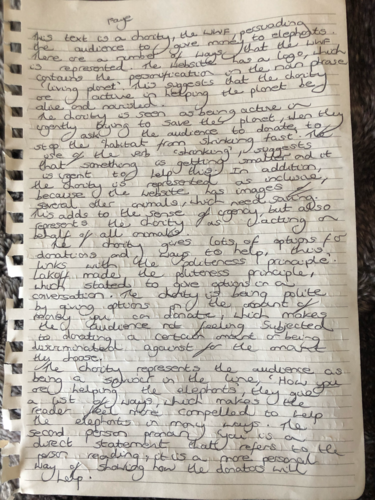 page
This text is a charity, the WWF persuading
the audience to give money to elephants.
There are a number of ways, that the WWF
is represented. The website has a logo, which
contains the personification in the main phrase
"living planet". This suggests that the charity
are active in helping the planet being
alive and nourished.
The charity is seen as being active in
urgently trying to save the planet, when they
ask the audience to donate, to
stop the "habitat from shrinking fast". The
use of the verb "shrinking", suggests
that something is getting smaller and it
is urgent to help this. In addition,
the charity is represented as inclusive,
because the website has images of
several other animals, which need saving.
This adds to the sense of urgency, but also
represents the charity as acting on
behalf of all animals.
The charity gives lots of options for
donations and ways to help, thus
links with the politeness principle.
Lakoff made the politeness principle,
which stated to give options in a
conversation. The charity is being polite
by giving options for the amount of
money you can donate, which makes
the audience not feeling subjected
to donating a certain amount or being
discriminated against for the amount
they choose.
The charity represents the audience as
being a saviour in the line, "How you
are helping the elephants", they give
a list of ways, which makes the
reader feel more compelled to help
the elephants in many ways. The
second person pronoun "you" is a
direct statement that refers to the
person reading, it is a more personal
way of showing how the donations will
help.